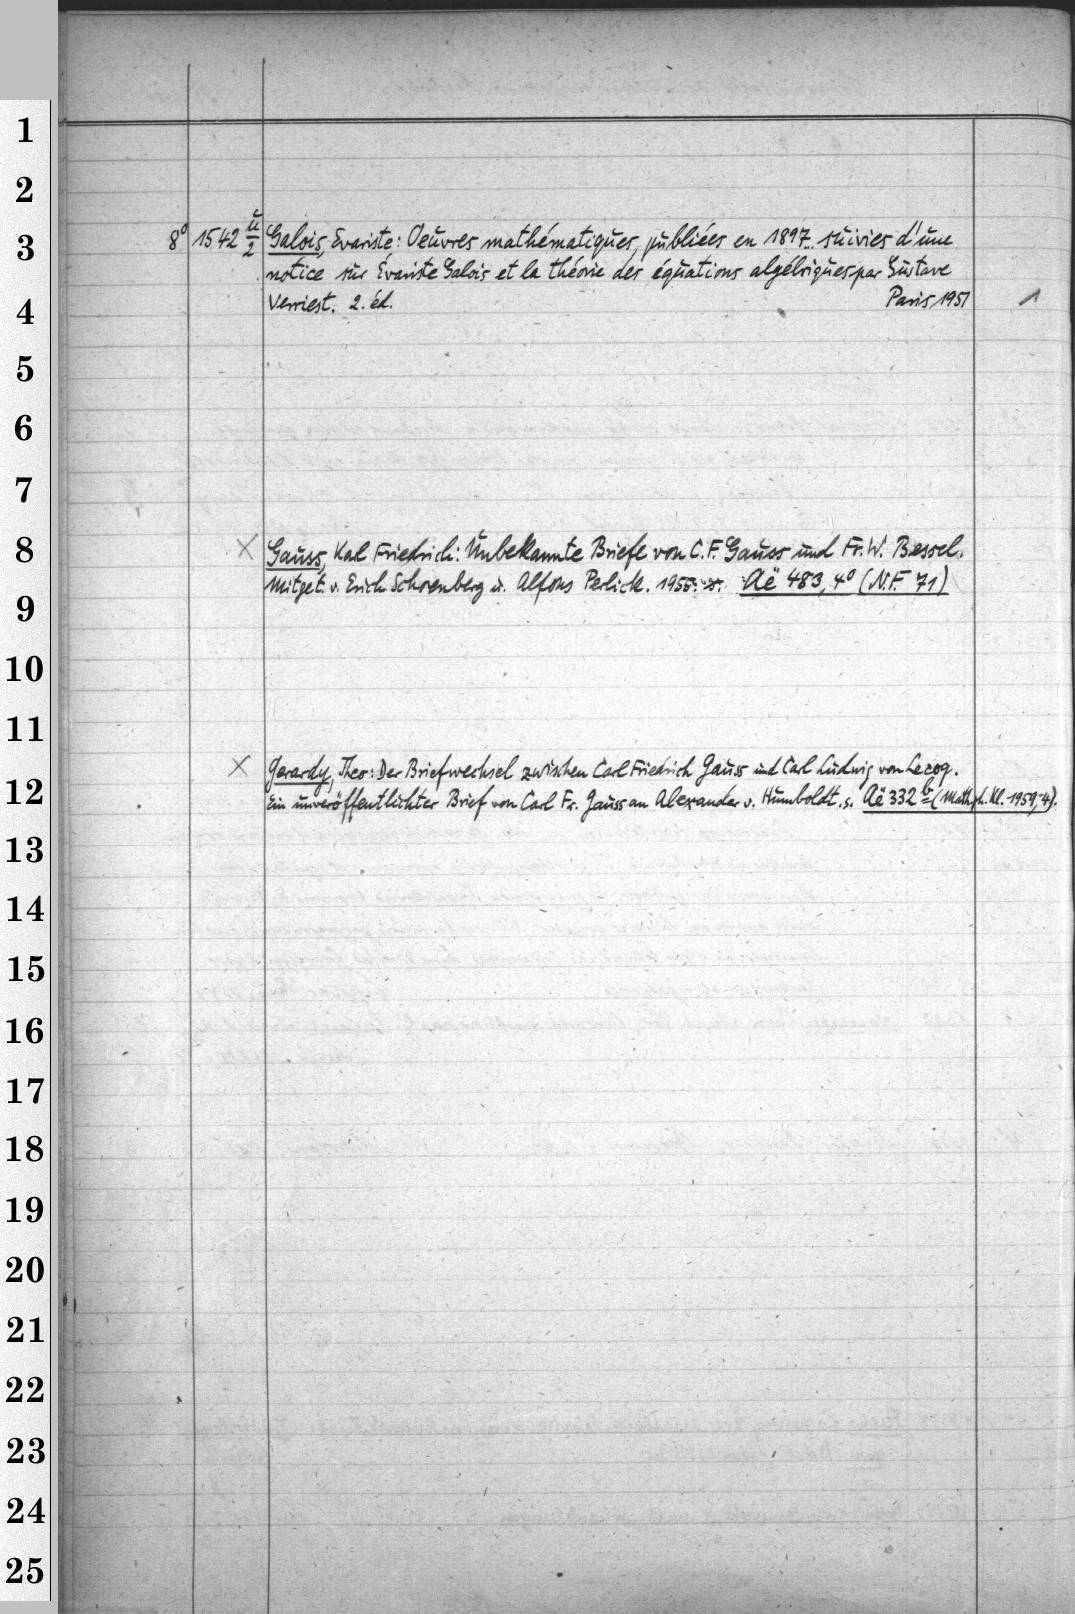 1
2
3
4
5
6
7
8
9
10
11
12
13
14
15
16
17
18
19
20
21
22
23
24
25
8° 1542 ü/2 Galois, Evariste: Oeuvres mathématiques, publiées en 1897.. suivies d'une
notice sur Évariste Galois et la théorie des équations algébriques par Gustave
Verriest. 2. éd. Paris 1951 1
X Gauss, Karl Friedrich: Unbekannte Briefe von C.F. Gauss und Fr. W. Bessel.
Mitget. v. Erich Schoenberg u. Alfons Perlick. 1955. s. Aë 483, 4° (N.F. 71)
X Gerardy, Theo: Der Briefwechsel zwischen Carl Friedrich Gauss und Carl Ludwig von Lecoq.
Ein unveröffentlichter Brief von Carl Fr. Gauss an Alexander v. Humboldt. s. Aë 332 b (Math. ph. Kl. 1959, 4).